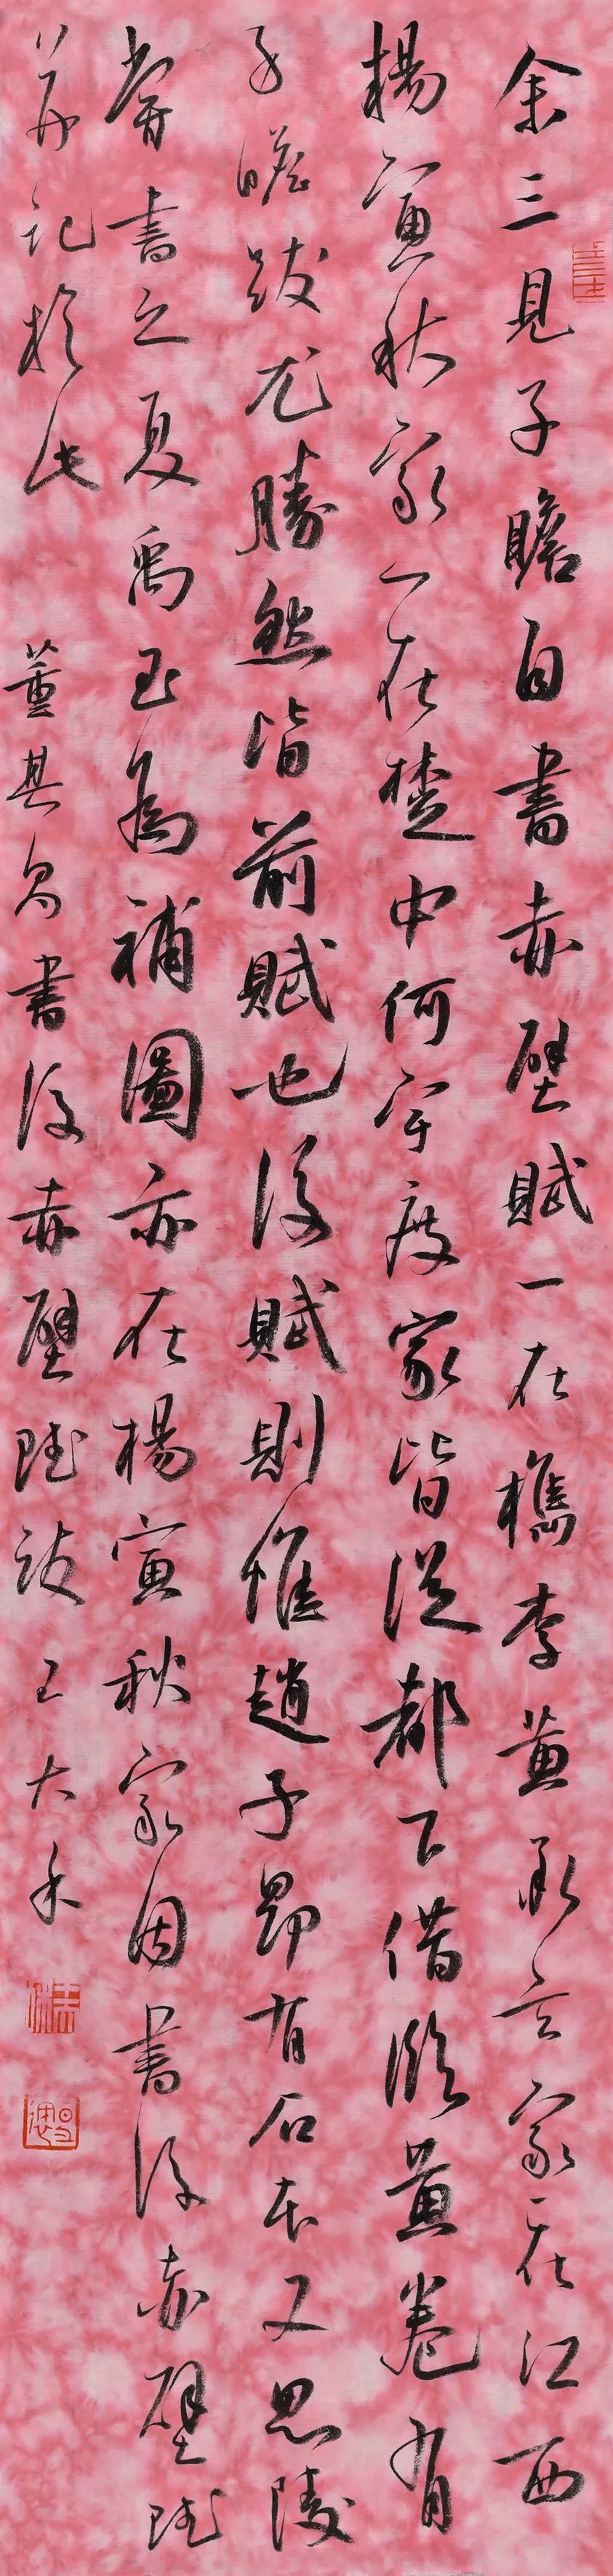 余三見子瞻自書赤壁賦一在檇李黃承玄家一在江西
楊寅秋家一在楚中何宇度家皆從都下借臨黃卷有
子瞻跋尤勝然皆前賦也後賦則惟趙子昂有石本又思陵
嘗書之夏禹玉為補圖亦在楊寅秋家因書後赤壁賦
并記於此 董其昌書後赤壁賦跋 王大禾